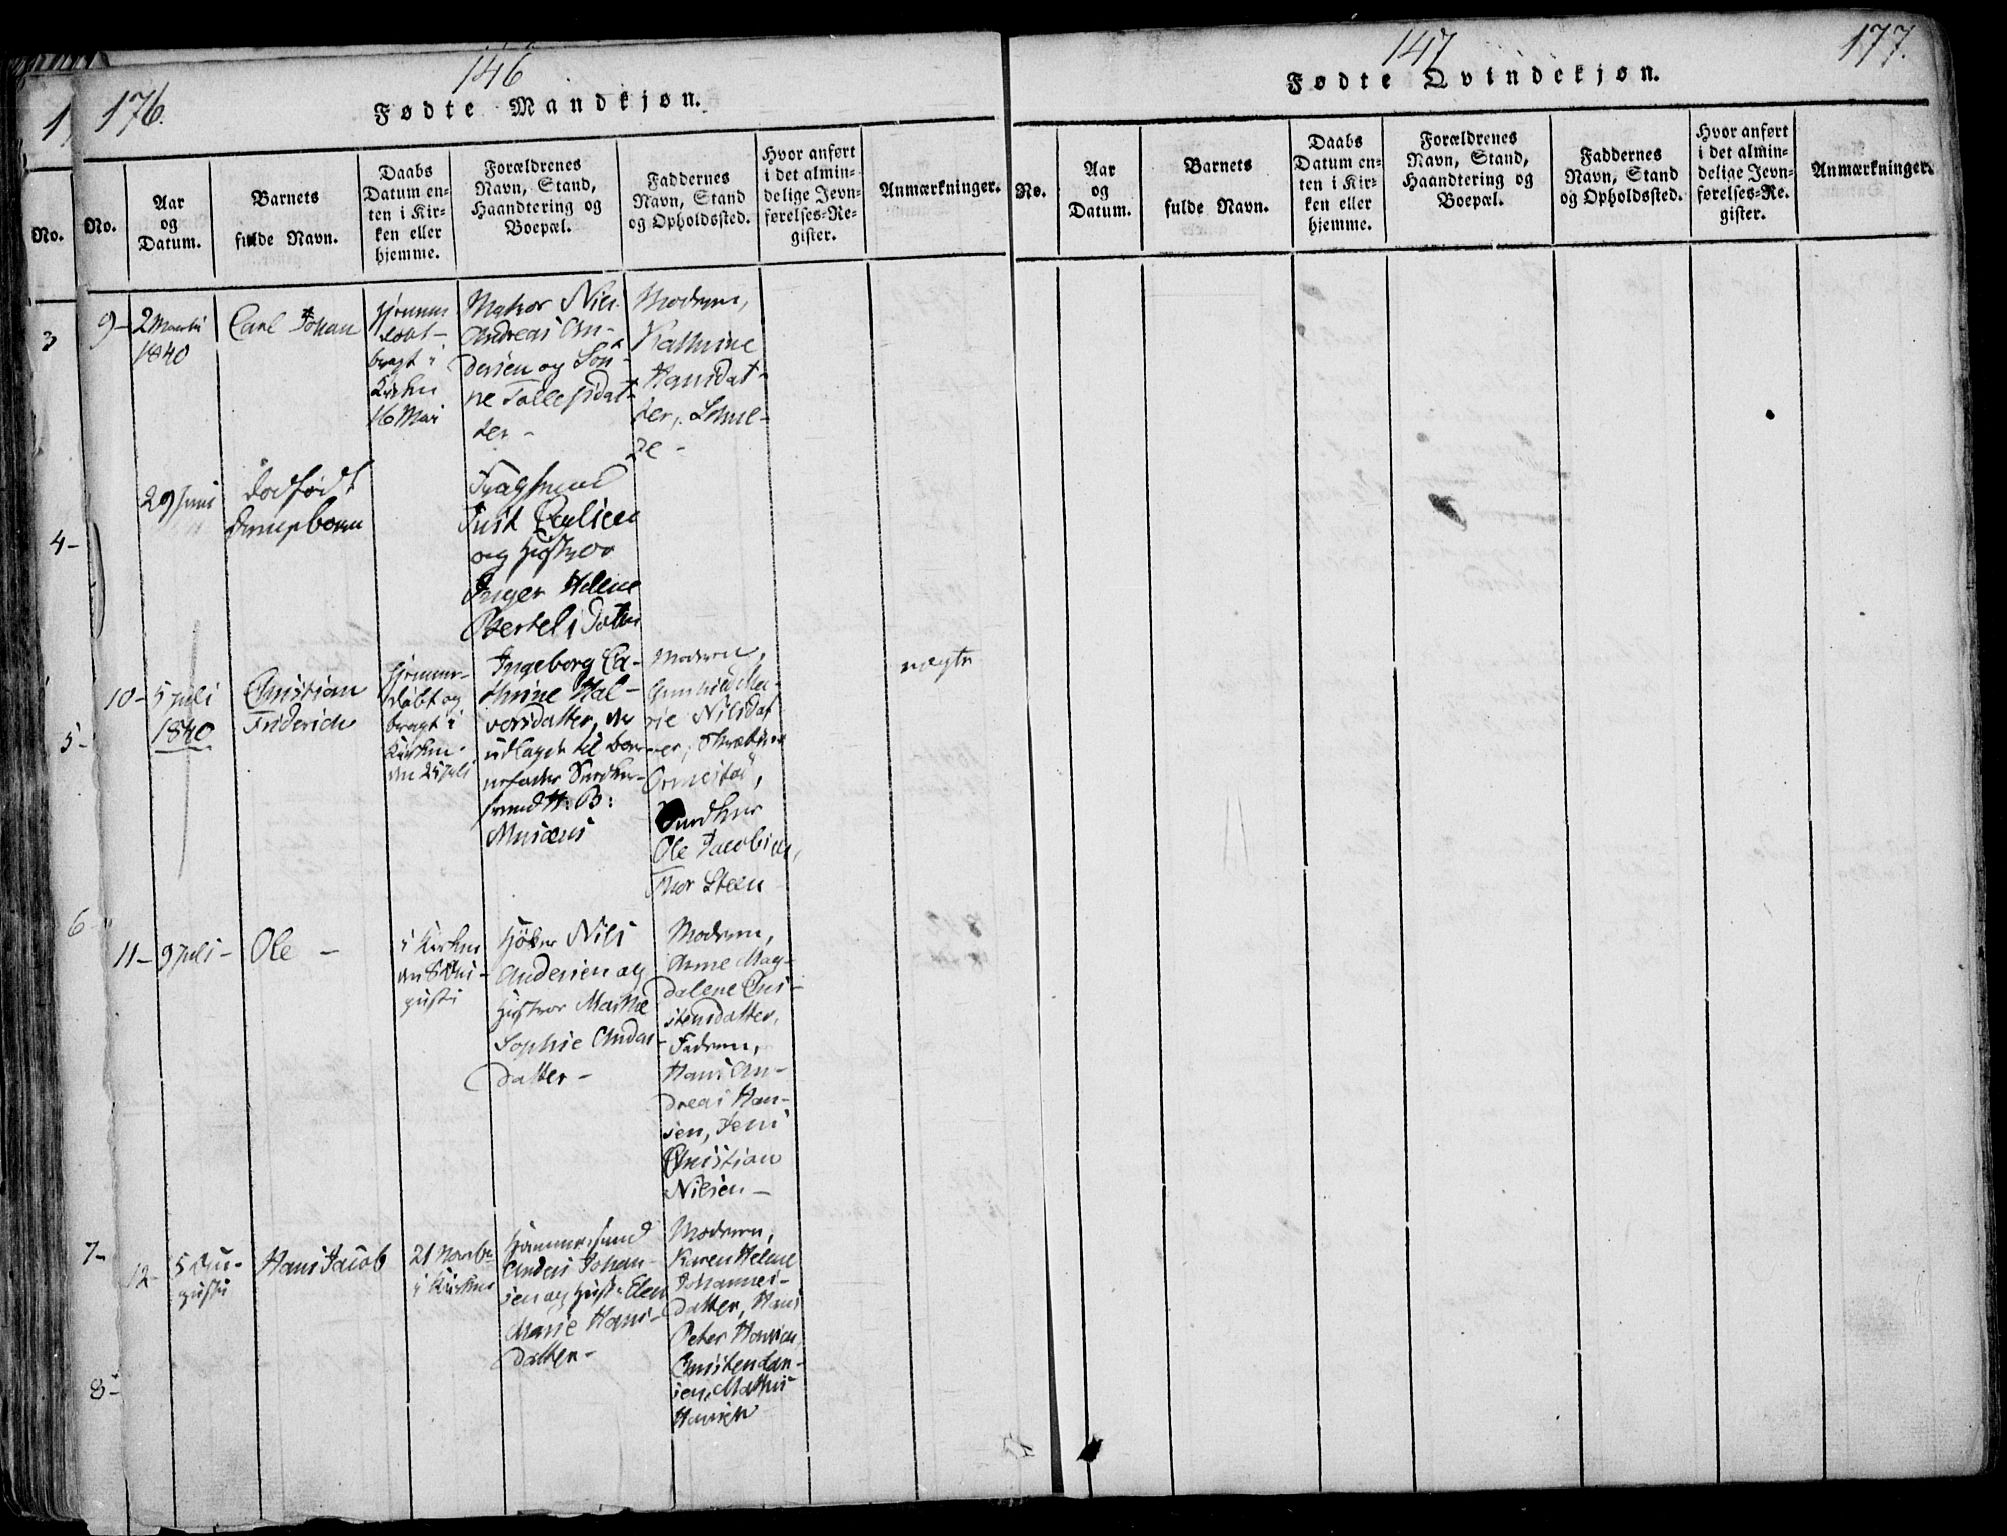 146
176.
Fødte Mandkjøn.
No.
Aar
og
Datum.
Barnets
fulde Navn.
Daabs
Datum en-
ten i Kir-
ken eller
hjemme.
Forældrenes
Navn, Stand,
Haandtering og
Boepæl.
Faddernes
Navn, Stand
og Opholdssted.
Hvor anført
i det almin-
delige Jevn-
førelses-Re-
gister.
Anmærkninger.
9-
2 Martii
1840
Carl Johan
hjemme
døbt-
bragt i
Kirken
16 Mai
Matros Niels
Andreas An-
dersen og
ne Tollefsdat-
ter -
Modren,
Kathrine
Hansdat-
ter,
29 Juni
dødfødt
Drengebarn
Just
og Hustroe
Inger Helene
Bertelsdatter
10-
5 Juli
1840
Christian
Friderich
hjemme-
døbt og
bragt i
Kirken
den 25 Juli
Ingeborg Ca-
thrine Hal-
vorsdatter, der
udlagde til Bar-
nefader Snedker-
svend H: B:
Musæus
Modren,
Gunhild Ma-
rie Nilsdat-
ter,
Snedker
Ole Jacobsen,
Thor Steen
uægte
11-
9 Juli-
Ole -
i Kirken
den 8 Au-
gusti
Nils
Andersen og
Hustroe Marthe
Sophie Anders-
datter-
Modren,
Anne Mag-
dalene Chri-
stensdatter,
Fadren,
Hans An-
dreas Han-
sen, Jens
Christian
Nilsen-
12-
5 Au-
gusti
Hans Jacob
21 Novbr
i Kirken
Tømmersvend
Anders Johan-
sen og Hust: Elen
Marie Hans-
datter-
Modren,
Karen Helene
Johannes-
datter, Hans
Peter Hansen,
Christen Lar-
sen, Mathis
Hansen
147
177.
Fødte Qvindekjøn.
No.
Aar
og
Datum.
Barnets
fulde Navn.
Daabs
Datum en-
ten i Kir-
ken eller
hjemme.
Forældrenes
Navn, Stand,
Haandtering og
Boepæl.
Faddernes
Navn, Stand
og Opholdssted.
Hvor anført
i det almin-
delige Jevn-
førelses-Re-
gister.
Anmærkninger.
No.
3
4-
5-
6
7-
8-